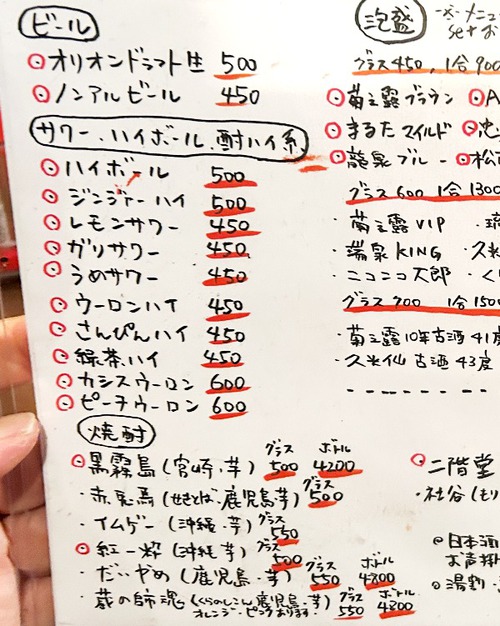 ビール
オリオンドラフト生 500
ノンアルビール 450
サワー、ハイボール、酎ハイ系
ハイボール 500
ジンジャーハイ 500
レモンサワー 450
ガリサワー 450
うめサワー 450
ウーロンハイ 450
さんぴんハイ 450
緑茶ハイ 450
カシスウーロン 600
ピーチウーロン 600
焼酎
グラス ボトル
黒霧島(宮崎・芋) 500 4200
・赤兎馬(せきとば・鹿児島芋) グラス 500
・イムゲー(沖縄・芋) グラス 550
紅一粋(沖縄芋) グラス 500
・だいやめ(鹿児島・芋) グラス 550 ボトル 4800
・蔵の師魂(くらのしこん 鹿児島・芋) グラス 550 ボトル 4800
オレンジ・ピンクあります。
泡盛
-※-メニュ
set お
グラス450, 1合900
菊之露ブラウン
まるたマイルド
龍泉ブルー 松
グラス600 1合1300
・菊之露VIP
・瑞泉KING ・久米
・ニコニコ太郎 ・く
グラス700 1合150
・菊之露10年古酒 41度
・久米仙 古酒 43度
二階堂
・社谷(もり
◎日本酒
お声掛
◎湯割・